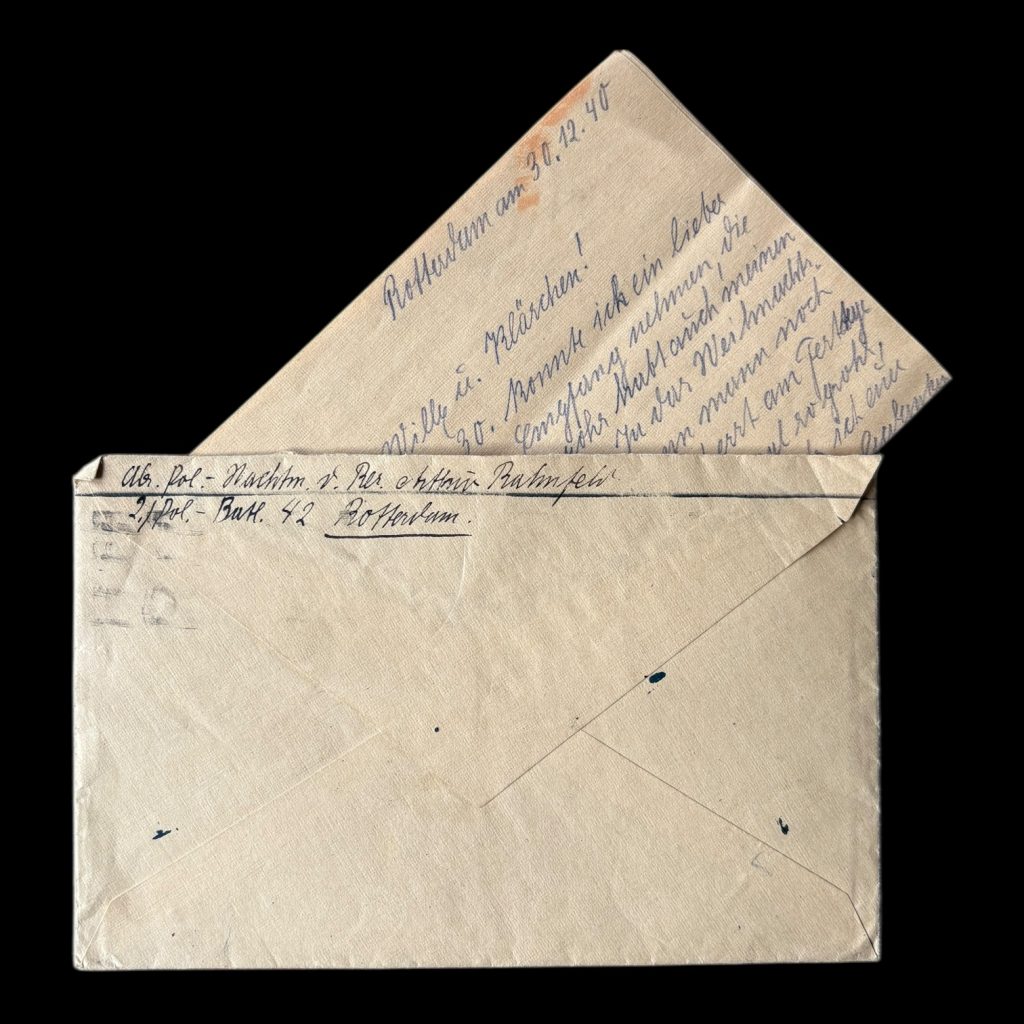 Rotterdam am 30.12.40
Willy u. Klärchen!
30. konnte ich ein lieber
Empfang nehmen, die
habt auch meinen
In das Weihnachts-
mann noch
am Festtage
so groß,
ich ein
Abs. Pol.- Wachtm. d. Res. Arthur Rahnfeld
2./Pol.- Batl. 42 Rotterdam.